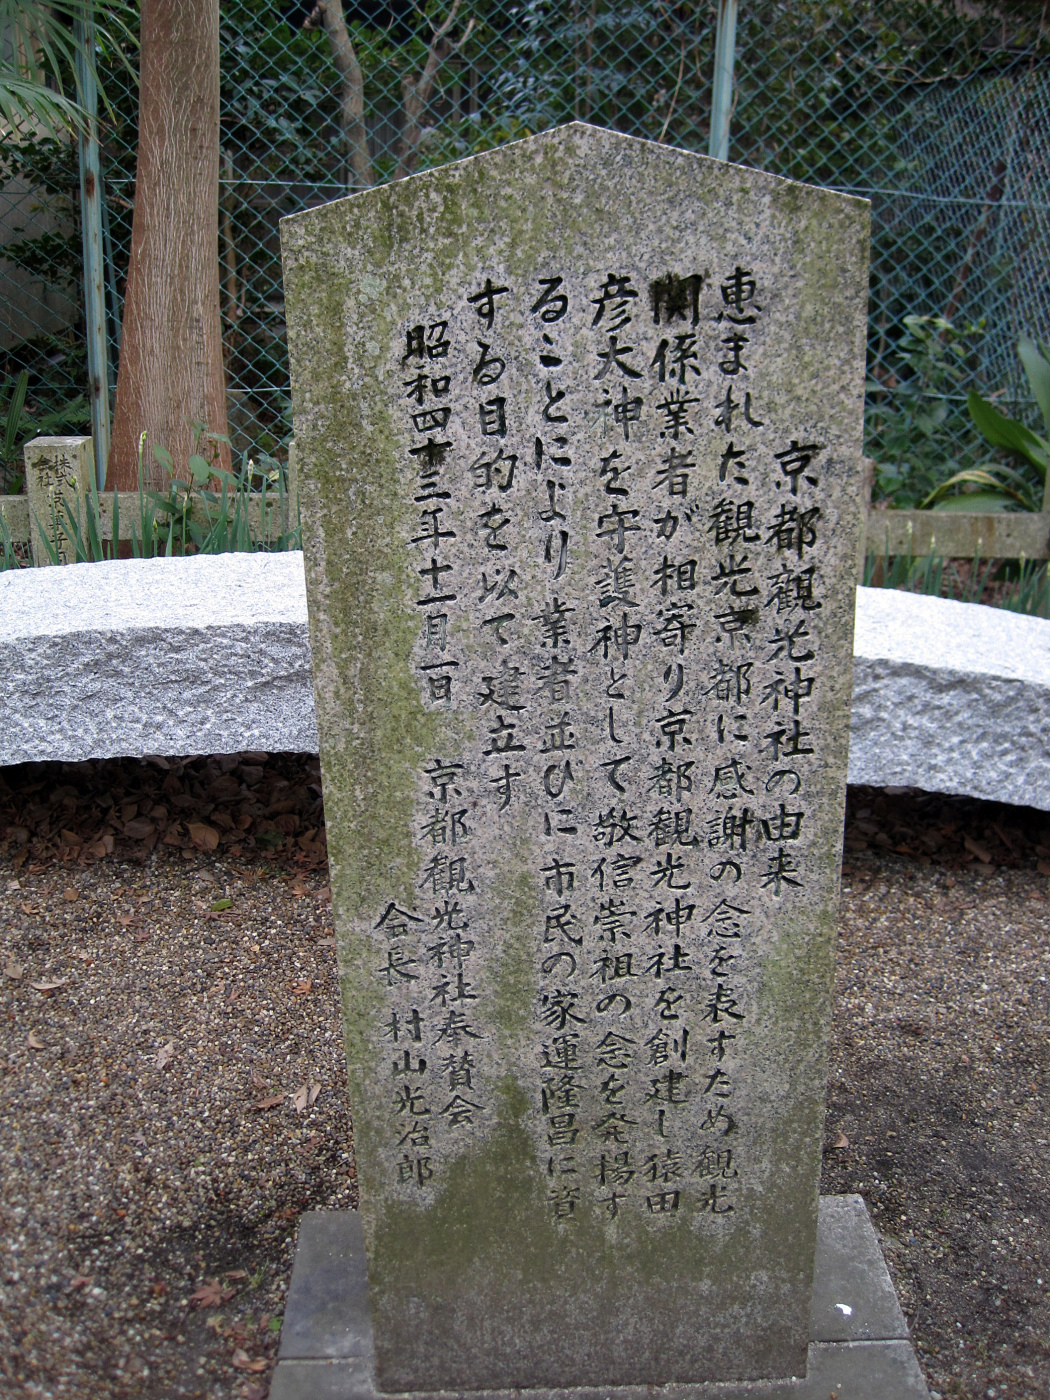 京都観光神社の由来
恵まれた観光京都に感謝の念を表すため観光
関係業者が相寄り京都観光神社を創建し猿田
彦大神を守護神として敬信崇祖の念を発揚す
ることにより業者並びに市民の家運隆昌に資
する目的を以て建立す
昭和四十三年十一月一日
京都観光神社奉賛会
会長 村山光治郎